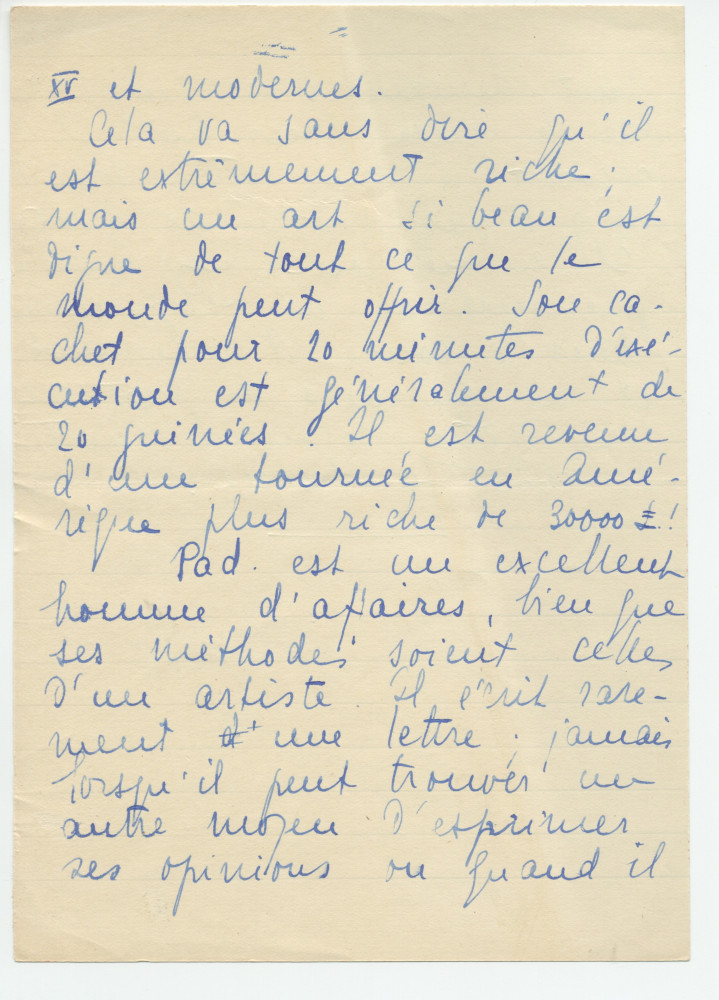 XV et modernes.
Cela va sans dire qu'il
est extrêmement riche ;
mais un art si beau est
digne de tout ce que le
monde peut offrir. Son ca-
chet pour 20 minutes d'exé-
cution est généralement de
20 guinées. Il est revenu
d'une tournée en Amé-
rique plus riche de 30000 £!
Pad. est un excellent
homme d'affaires, bien que
ses méthodes soient celles
d'un artiste. Il écrit rare-
ment une lettre ; jamais
lorsqu'il peut trouver un
autre moyen d'exprimer
ses opinions ou quand il